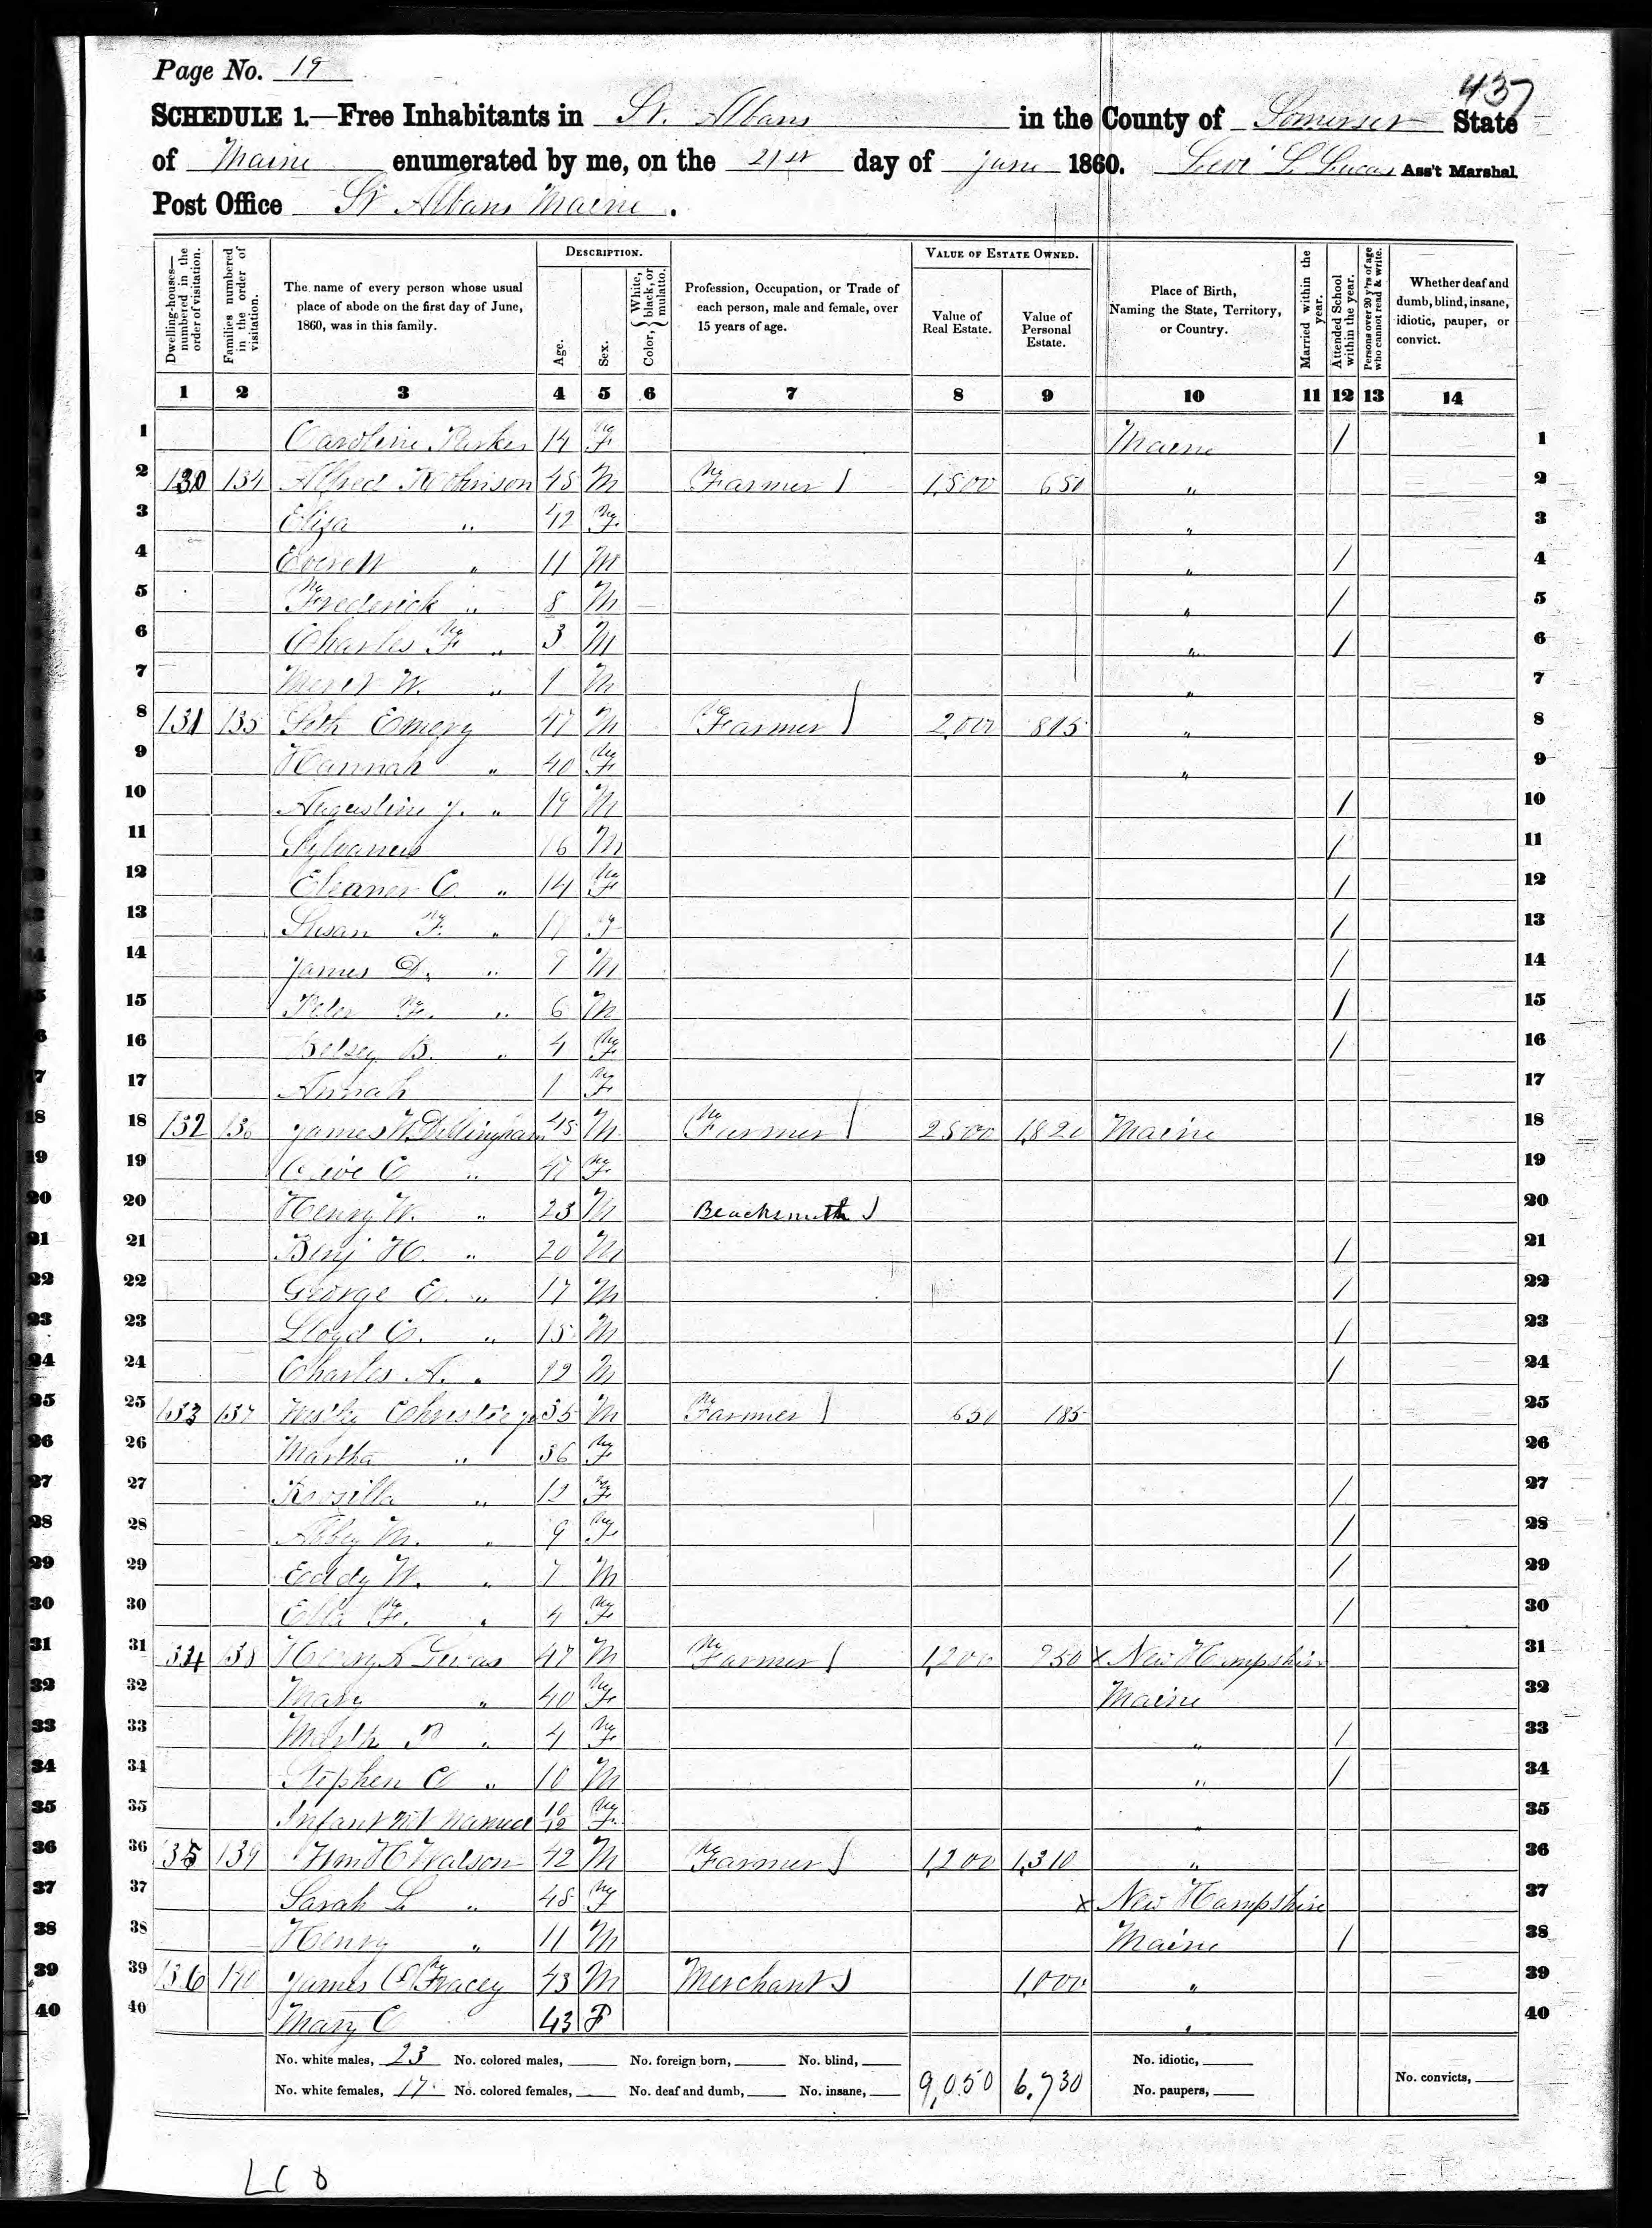 Page No. 19
437
SCHEDULE 1.—Free Inhabitants in St. Albans in the County of Somerset State
of Maine enumerated by me, on the 21st day of June 1860. Levi L Lucas Ass't Marshal
Post Office St Albans Maine.
Dwelling-houses—numbered in the order of visitation.
Families numbered in the order of visitation.
The name of every person whose usual place of abode on the first day of June, 1860, was in this family.
DESCRIPTION.
Age.
Sex.
Color, White, black, or mulatto.
Profession, Occupation, or Trade of each person, male and female, over 15 years of age.
VALUE OF ESTATE OWNED.
Value of Real Estate.
Value of Personal Estate.
Place of Birth, Naming the State, Territory, or Country.
Married within the year.
Attended School within the year.
Persons over 20 y'rs of age who cannot read & write.
Whether deaf and dumb, blind, insane, idiotic, pauper, or convict.
1 2 3 4 5 6 7 8 9 10 11 12 13 14
1 Caroline Parker 14 F Maine / 1
2 130 134 Alfred Robinson 48 M Farmer / 1,500 650 " 2
3 Eliza " 42 F " 3
4 Everett " 11 M " / 4
5 Frederick " 8 M " / 5
6 Charles F " 3 M " / 6
7 W. " 1 M " 7
8 131 135 Seth Emery 47 M Farmer / 2,000 815 " 8
9 Hannah " 40 F " 9
10 Augustine J. " 19 M / 10
11 Sylvanus 16 M / 11
12 Eleaner C. " 14 F / 12
13 Susan F. " 11 F / 13
14 James D. " 9 M / 14
15 Peter F. " 6 M / 15
16 Betsey B. " 4 F / 16
17 Annah 1 F 17
18 132 136 James W. Dillingham 45 M Farmer / 2500 1,820 Maine 18
19 Olive C " 47 F 19
20 Henry W. " 23 M Blacksmith / 20
21 Benj H. " 20 M / 21
22 George E. " 17 M / 22
23 Lloyd C. " 15 M / 23
24 Charles A. " 12 M / 24
25 133 137 Christie 35 M Farmer / 650 185 25
26 Martha " 36 F 26
27 Rosilla " 12 F / 27
28 Abby M. " 9 F / 28
29 Eddy W. " 7 M / 29
30 Ella F. " 4 F / 30
31 134 138 Henry 47 M Farmer / 1,200 250 x New Hampshire 31
32 Mary " 40 F Maine 32
33 " 4 F " / 33
34 Stephen C " 10 M " / 34
35 Infant not Named 10/12 F " 35
36 135 139 Wm H Watson 42 M Farmer / 1,200 1,310 " 36
37 Sarah L " 48 F x New Hampshire 37
38 Henry " 11 M Maine / 38
39 136 140 James C Tracey 43 M Merchant / 1,000 " 39
40 Mary C 43 F " 40
No. white males, 23 No. colored males, No. foreign born, No. blind, No. idiotic,
No. white females, 17 No. colored females, No. deaf and dumb, No. insane, 9,050 6,730 No. paupers, No. convicts,